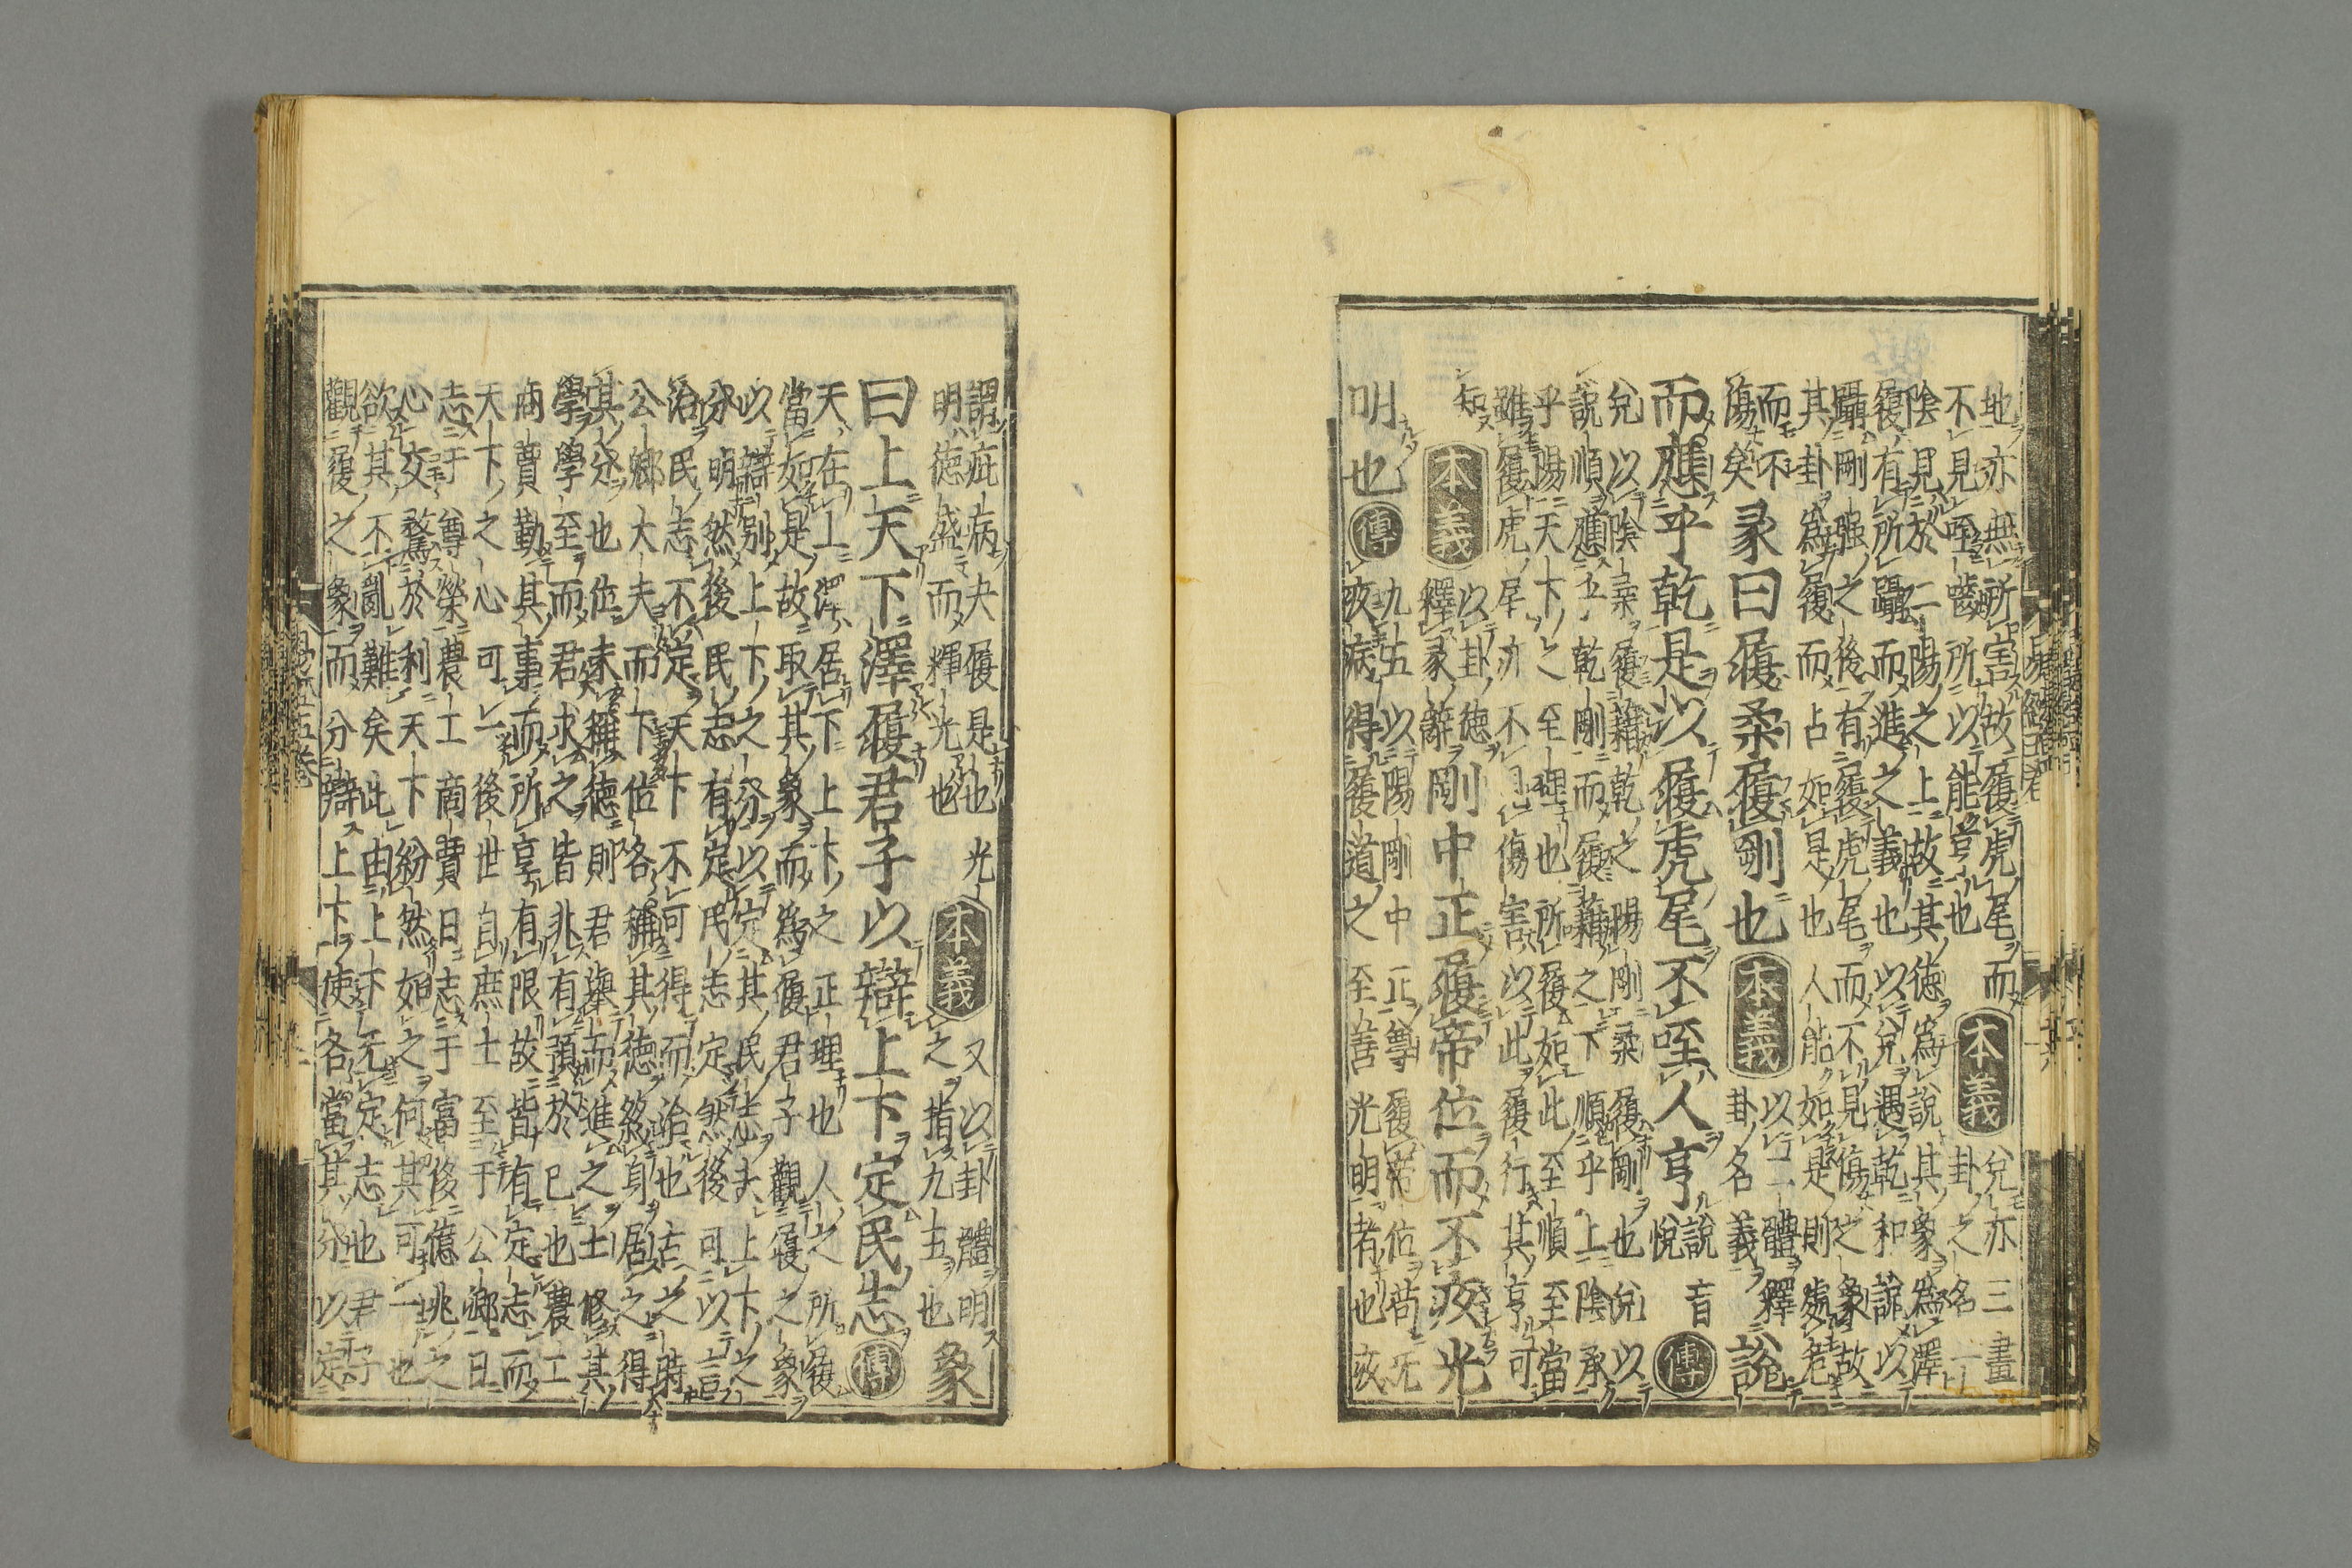 地亦無所害故履虎尾而
不見咥嚙所以能亨也
本義
兌亦三畫
卦之名一
陰見於二陽之上故其德為說其象為澤
履有所躡而進之義也以兌遇乾和說以
躡剛强之後有履虎尾而不見傷之象故
其卦為履而占如是也人能如是則處危
而不
傷矣
彖曰履柔履剛也
本義
以二體釋
卦名義
說
而應乎乾是以履虎尾不咥人亨
說音
悅
傳
兌以陰柔履藉乾之陽剛柔履剛也兌以
說順應乎乾剛而履藉之下順乎上陰承
乎陽天下之至理也所履如此至順至當
雖履虎尾亦不見傷害以此履行其亨可
知
本義
以卦德
釋彖辭
剛中正履帝位而不疚光
明也
傳
九五以陽剛中正尊履帝位苟无
疚病得履道之至善光明者也疚
謂疵病夬履是也光
明德盛而輝光也
本義
又以卦體明
之指九五也
象
曰上天下澤履君子以辯上下定民志
傳
天在上澤居下上下之正理也人之所履
當如是故取其象而為履君子觀履之象
以辯別上下之分以定其民志夫上下之
分明然後民志有定民志定然後可以言
治民志不定天下不可得而治也古之時
公卿大夫而下位各稱其德終身居之得
其分也位未稱德則君舉而進之士修其
學學至而君求之皆非有預於己也農工
商賈勤其事而所享有限故皆有定志而
天下之心可一後世自庶士至于公卿日
志于尊榮農工商賈日志于富侈億兆之
心交騖於利天下紛然如之何其可一也
欲其不亂難矣此由上下无定志也君子
觀履之象而分辯上下使各當其分以定